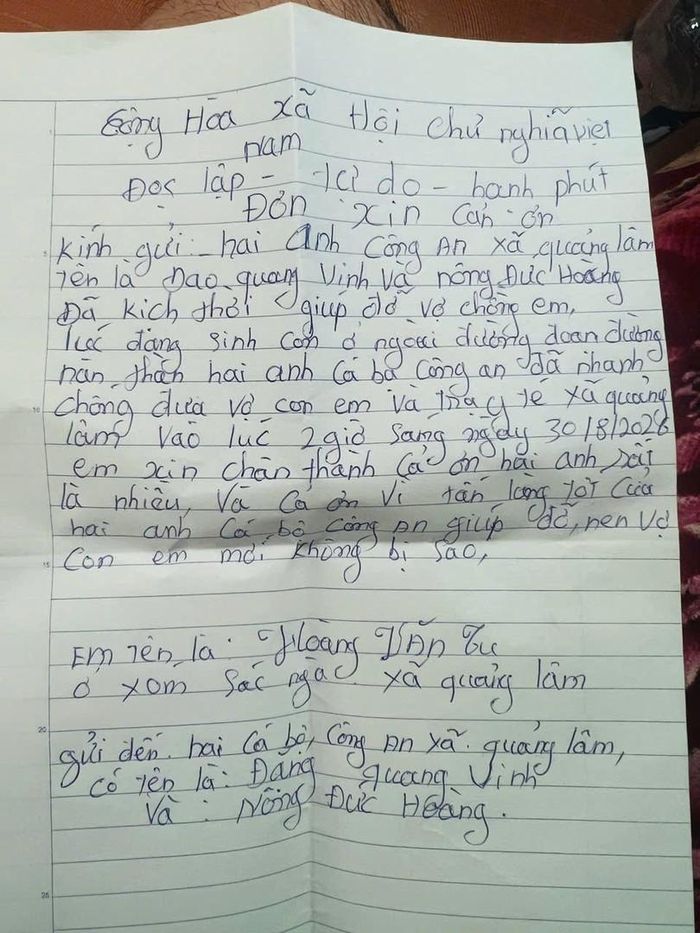 Cộng Hòa xã Hội chủ nghĩa việt
nam
Đọc lập - tự do - hanh phút
Đơn xin cản ơn
kính gửi hai anh công An xã quảng lâm
tên là Đạo quang Vinh Và nông Đức Hoàng
Đã kich thời giúp đỡ vợ chồng em,
lúc đang sinh con ở ngoài đường đoan đường
nàn thàn hai anh Cá bộ công an đã nhanh
chông đưa vợ con em và trạy tế xã quảng
lâm vào lúc 2 giờ sáng ngày 30/8/2026
em xin chân thành cả ơn hai anh rất
là nhiều, và cả ơn vì tấn lòng tốt của
hai anh Cá bộ Công An giúp đỡ, nen vợ
con em mới không bị sao,
Em tên là: Hoàng Văn Tu
ở xom Sác ngà xã quảng lâm
gửi đến hai Cá bộ, công An xã quảng lâm,
có tên là: Đặng quang Vinh
Và: Nông Đức Hoàng.
10
15
20
25